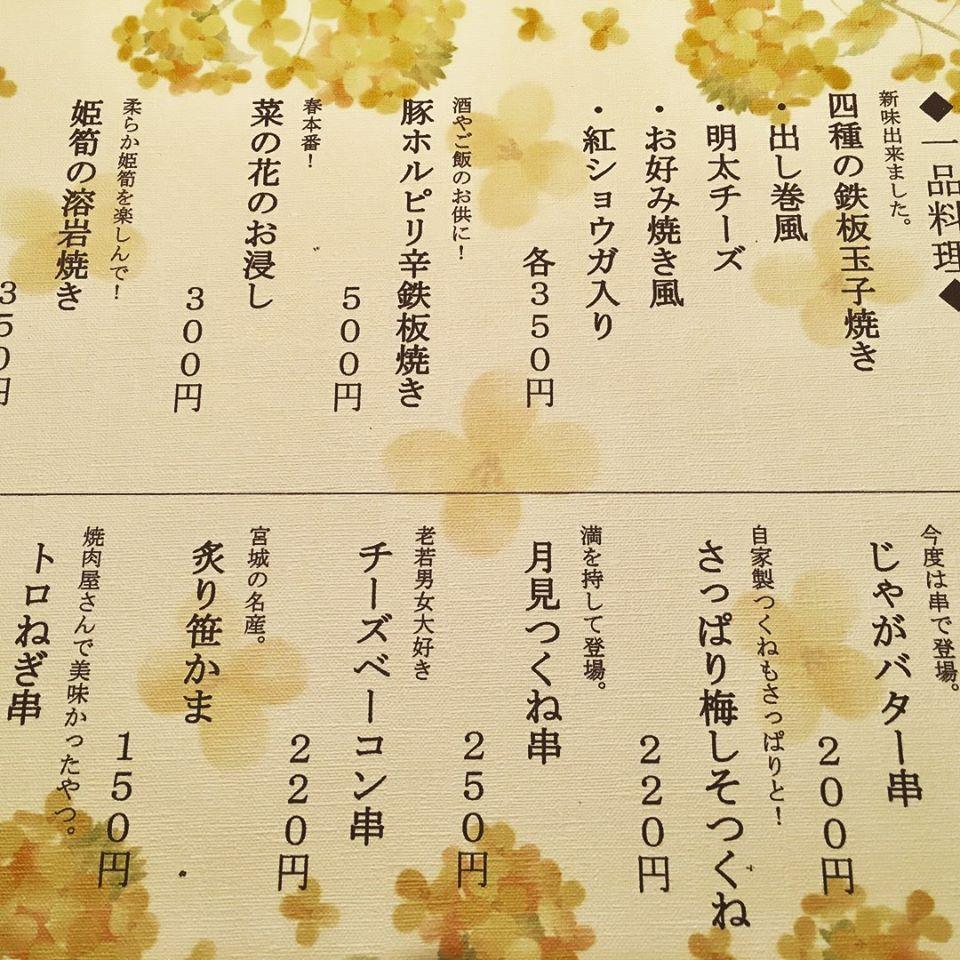 ◆一品料理◆
新味出来ました。
四種の鉄板玉子焼き
・出し巻風
・明太チーズ
・お好み焼き風
・紅ショウガ入り
各350円
酒やご飯のお供に!
豚ホルピリ辛鉄板焼き
500円
春本番!
菜の花のお浸し
300円
柔らか姫筍を楽しんで!
姫筍の溶岩焼き
350円
今度は串で登場。
じゃがバター串
200円
自家製つくねもさっぱりと!
さっぱり梅しそつくね
220円
満を持して登場。
月見つくね串
250円
老若男女大好き
チーズベーコン串
220円
宮城の名産。
炙り笹かま
150円
焼肉屋さんで美味かったやつ。
トロねぎ串